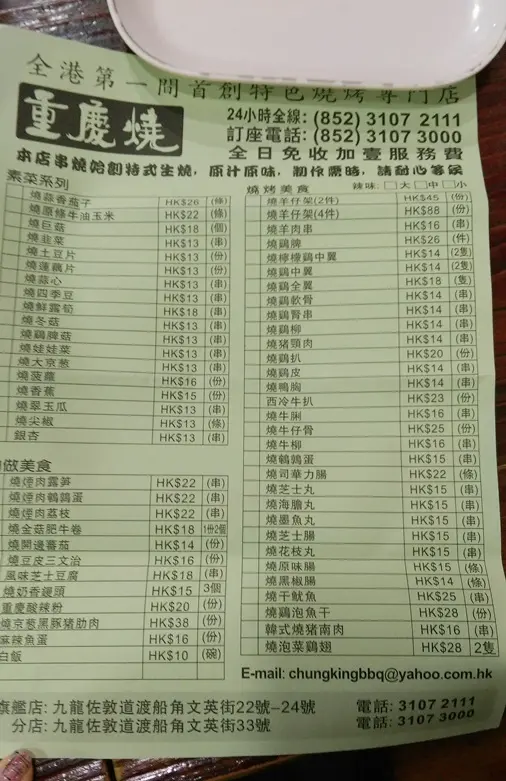 全港第一間首創特色燒烤專門店
重慶燒
24小時全線: (852) 3107 2111
訂座電話: (852) 3107 3000
全日免收加壹服務費
本店串燒始創特式生燒,原汁原味,製作需時,請耐心等候
素菜系列
燒蒜香茄子 HK$26 (條)
燒原條牛油玉米 HK$22 (條)
燒巨菇 HK$18 (個)
燒韭菜 HK$13 (串)
燒土豆片 HK$13 (份)
燒蓮藕片 HK$13 (份)
燒蒜心 HK$13 (串)
燒四季豆 HK$13 (串)
燒鮮露筍 HK$18 (串)
燒冬菇 HK$13 (串)
燒鷄脾菇 HK$13 (串)
燒娃娃菜 HK$13 (串)
燒大京葱 HK$13 (串)
燒菠蘿 HK$16 (份)
燒香蕉 HK$15 (份)
燒翠玉瓜 HK$13 (串)
燒尖椒 HK$13 (條)
銀杏 HK$13 (串)
做美食
燒煙肉露筍 HK$22 (串)
燒煙肉鵪鶉蛋 HK$22 (串)
燒煙肉荔枝 HK$22 (串)
燒金菇肥牛卷 HK$18 1份2個
燒開邊蕃茄 HK$14 (份)
燒豆皮三文治 HK$16 (份)
風味芝士豆腐 HK$18 (串)
燒奶香饅頭 HK$15 3個
重慶酸辣粉 HK$20 (份)
燒京葱黑豚豬肋肉 HK$38 (份)
麻辣魚蛋 HK$16 (份)
白飯 HK$10 (碗)
燒烤美食 辣味: □大 □中 □小
燒羊仔架(2件) HK$45 (份)
燒羊仔架(4件) HK$88 (份)
燒羊肉串 HK$16 (串)
燒鷄脾 HK$26 (件)
燒檸檬鷄中翼 HK$14 (2隻)
燒鷄中翼 HK$14 (2隻)
燒鷄全翼 HK$18 (隻)
燒鷄軟骨 HK$14 (串)
燒鷄腎串 HK$14 (串)
燒鷄柳 HK$14 (串)
燒豬頸肉 HK$14 (串)
燒鷄扒 HK$20 (份)
燒鷄皮 HK$14 (串)
燒鴨胸 HK$14 (串)
西冷牛扒 HK$23 (份)
燒牛脷 HK$16 (串)
燒牛仔骨 HK$25 (份)
燒牛柳 HK$16 (串)
燒鵪鶉蛋 HK$15 (串)
燒司華力腸 HK$22 (條)
燒芝士丸 HK$15 (串)
燒海膽丸 HK$15 (串)
燒墨魚丸 HK$15 (串)
燒芝士腸 HK$15 (串)
燒花枝丸 HK$15 (串)
燒原味腸 HK$15 (條)
燒黑椒腸 HK$14 (條)
燒干魷魚 HK$25 (串)
燒鷄泡魚干 HK$28 (份)
韓式燒豬南肉 HK$16 (串)
燒泡菜鷄翅 HK$28 2隻
E-mail: chungkingbbq@yahoo.com.hk
旗艦店: 九龍佐敦道渡船角文英街22號-24號 電話: 3107 2111
分店: 九龍佐敦道渡船角文英街33號 電話: 3107 3000